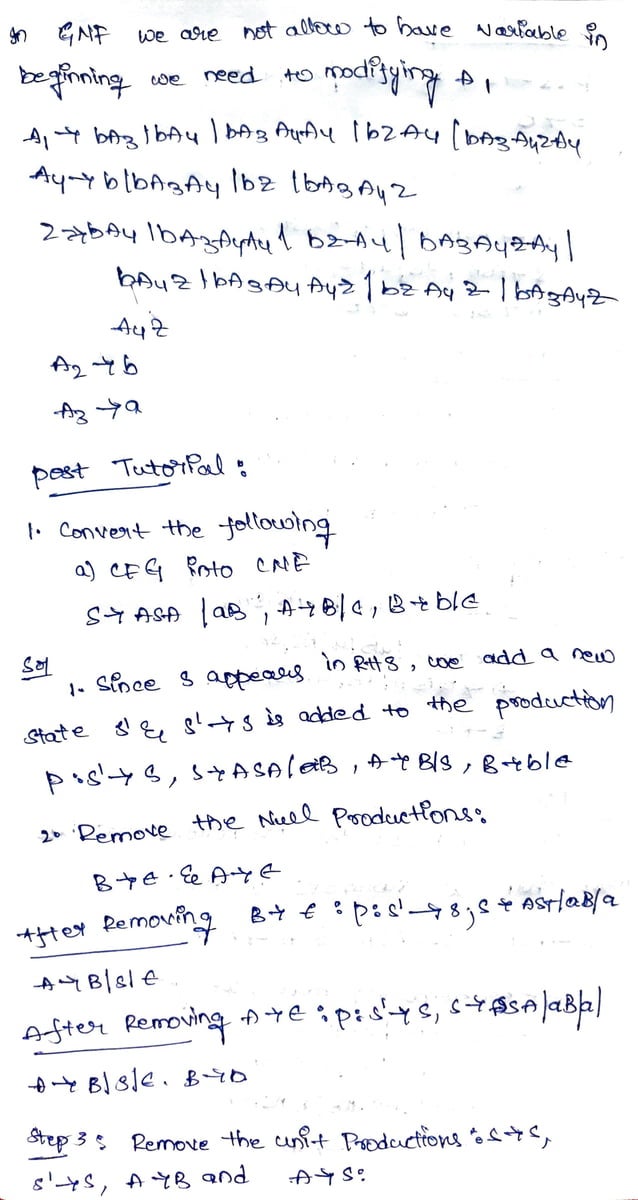 In GNF we are not allow to have Variable in
beginning we need to modifying A1
A1 → bA3 | bA4 | bA3 A4A4 | bZA4 | bA3A4ZA4
A4 → b | bA3A4 | bZ | bA3A4Z
Z → bA4 | bA3A4A4 | bZA4 | bA3A4ZA4 |
bA4Z | bA3A4A4Z | bZA4Z | bA3A4Z
A4Z
A2 → b
A3 → a
post Tutorial :
1. Convert the following
a) CFG into CNF
S → ASA | aB , A → B | C , B → b | ∈
Sol 1. Since S appears in RHS , we add a new
state S' & S' → S is added to the production
P : S' → S , S → ASA | aB , A → B|S , B → b | ∈
2. Remove the Null Productions :
B → ∈ . & A → ∈
After Removing B → ∈ : P : S' → S ; S → ASA | aB | a
A → B | S | ∈
After Removing A → ∈ : P : S' → S , S → SA | aB | a |
A → B | S | ∈ . B → b
Step 3 : Remove the unit Productions : S → S ,
S' → S , A → B and A → S :